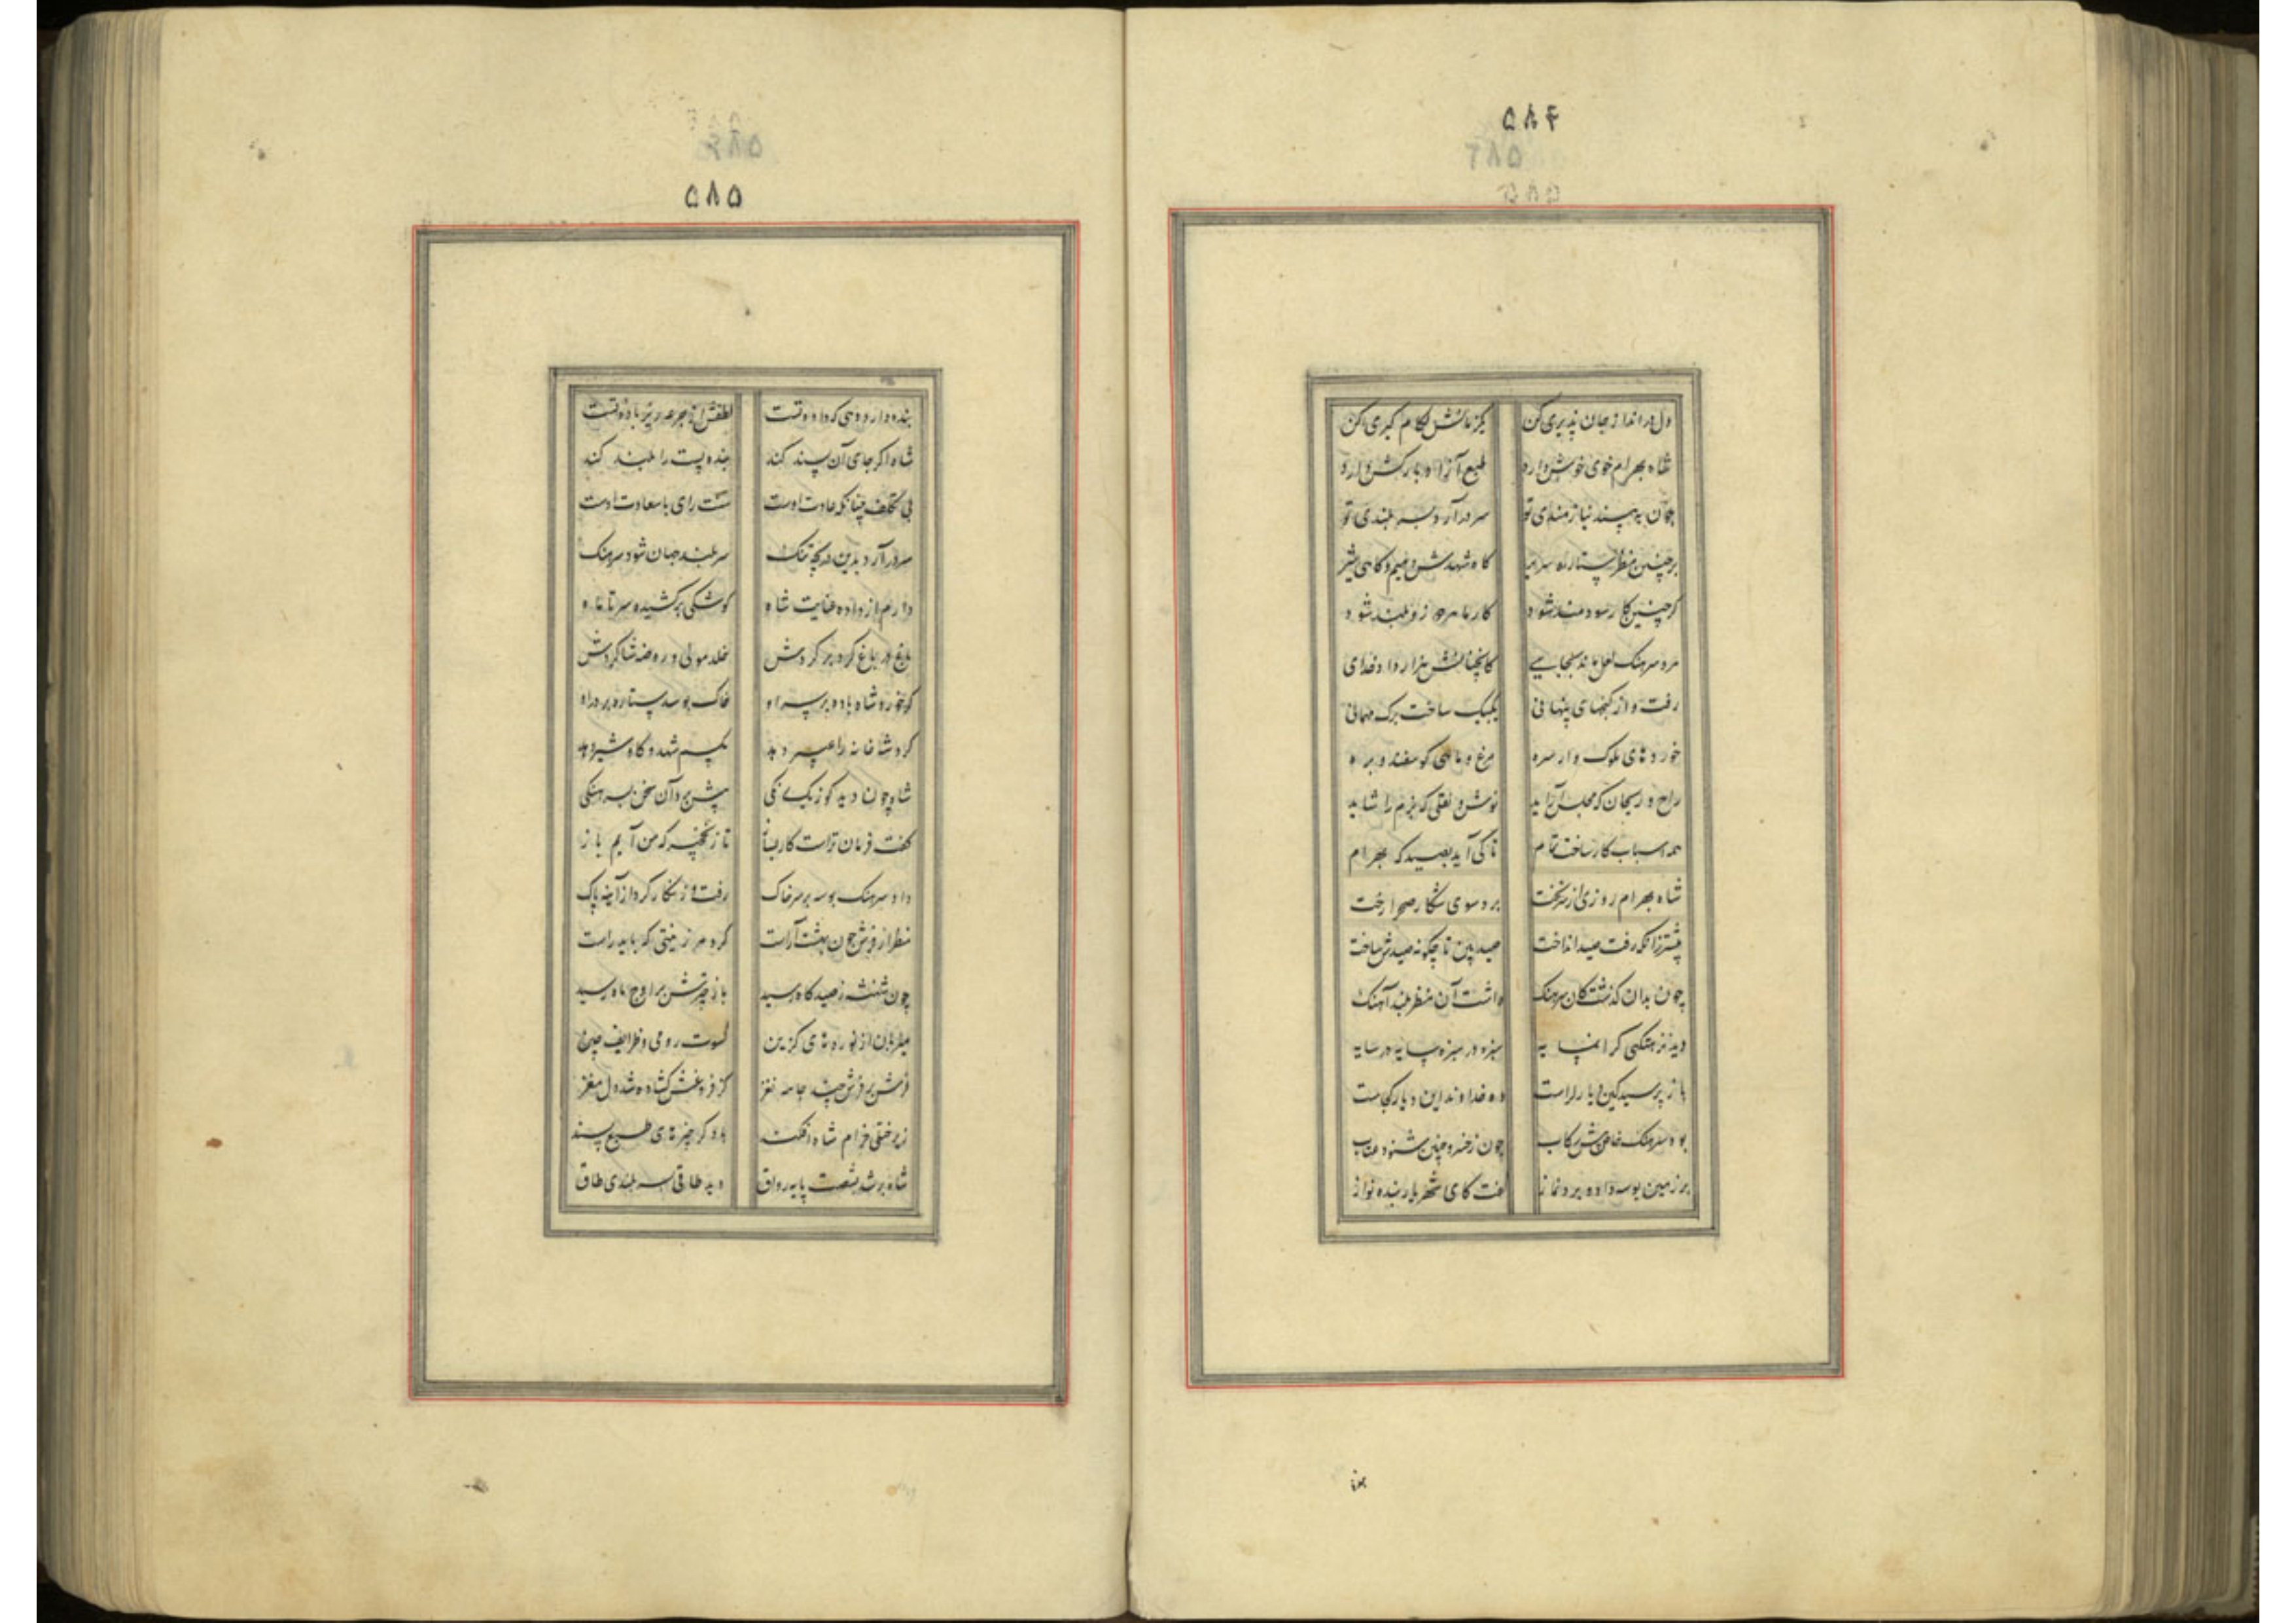 ۵۸۴
دل در انداز جان پذیری کن یکزمانش لکام کیری کن
شاه بهرام خوی خوش دارد طبع آزاد بارکش دارد
چون به بیند نیازمندی تو سر درآرد بسربلندی تو
برچنین منظر ستاره سریر کاه شهدش دهیم و کاهی شیر
کر چنین کار سودمند شود کار ما هر دو زو بلند شود
مرد سرهنک لعل ماند بجای کانچنانش هزار داد خدای
رفت و از کنجهای پنهانی یکبیک ساخت برک مهمانی
خوردهای ملوک وار سره مرغ و ماهی کوسفند و بره
راح و ریحان که مجلس آراید نوش و نقلی که بزم را شاید
همه اسباب کار ساخت تمام تا کی آید بصید که بهرام
شاه بهرام روزی از سر تخت برد سوی شکار صحرا رخت
پیشتر زانکه رفت صید انداخت صید بین تا چکونه صیدش ساخت
چون بدان کذشت کان سرهنک داشت آن منظر بلند آهنک
دید نزهتکهی کرانپایه سبزه در سبزه سایه در سایه
باز پرسید کین دیار کراست ده خداوند این دیار کجاست
بود سرهنک خاص پیش رکاب چون ز خسرو چنین شنود عتاب
بر زمین بوسه داد و برد نماز کفت کای شهریار بنده نواز
بند
۵۸۵
بنده دارد دهی که داده تست لطفش از جرعه ریز باده تست
شاه اکر جای آن پسند کند بنده پست را بلند کند
بی تکلف چنانکه عادت اوست سنت رای با سعادت اوست
سر درآرد بدین دریچه تنک سربلند جهان شود سرهنک
دارم از داده عنایت شاه کوشکی برکشیده سر تا ماه
باغ در باغ کرد بر کردش خلد مولی و روضه شاکردش
کر خورد شاه باده بر سر او خاک بوسد ستاره بر در او
کرد شا خانه را عبیر دهد مکسم شهد و کاو شیر دهد
شاه چون دید کو ز یکرنکی پیش برد آن سخن بسرهنکی
کفت فرمان تراست کار بساز تا ز نخچیر که من آیم باز
داد سرهنک بوسه بر سر خاک رفت و زنکار کرد از آینه پاک
منظر از فرش چون بهشت آراست کرد هر زینتی که باید راست
چون شهنشه ز صید کاه رسید باز چترش بر اوج ماه رسید
میزبان از نورهای کزین کسوت رومی و ظرایف چین
فرش بر فرش چند جامه نغز کز فروغش کشاده شد دل و مغز
زیر ختلی خرام شاه افکند بر دکر چیزهای طبع پسند
شاه بر شد بشصت پایه رواق دید طاقی بسربلندی طاق